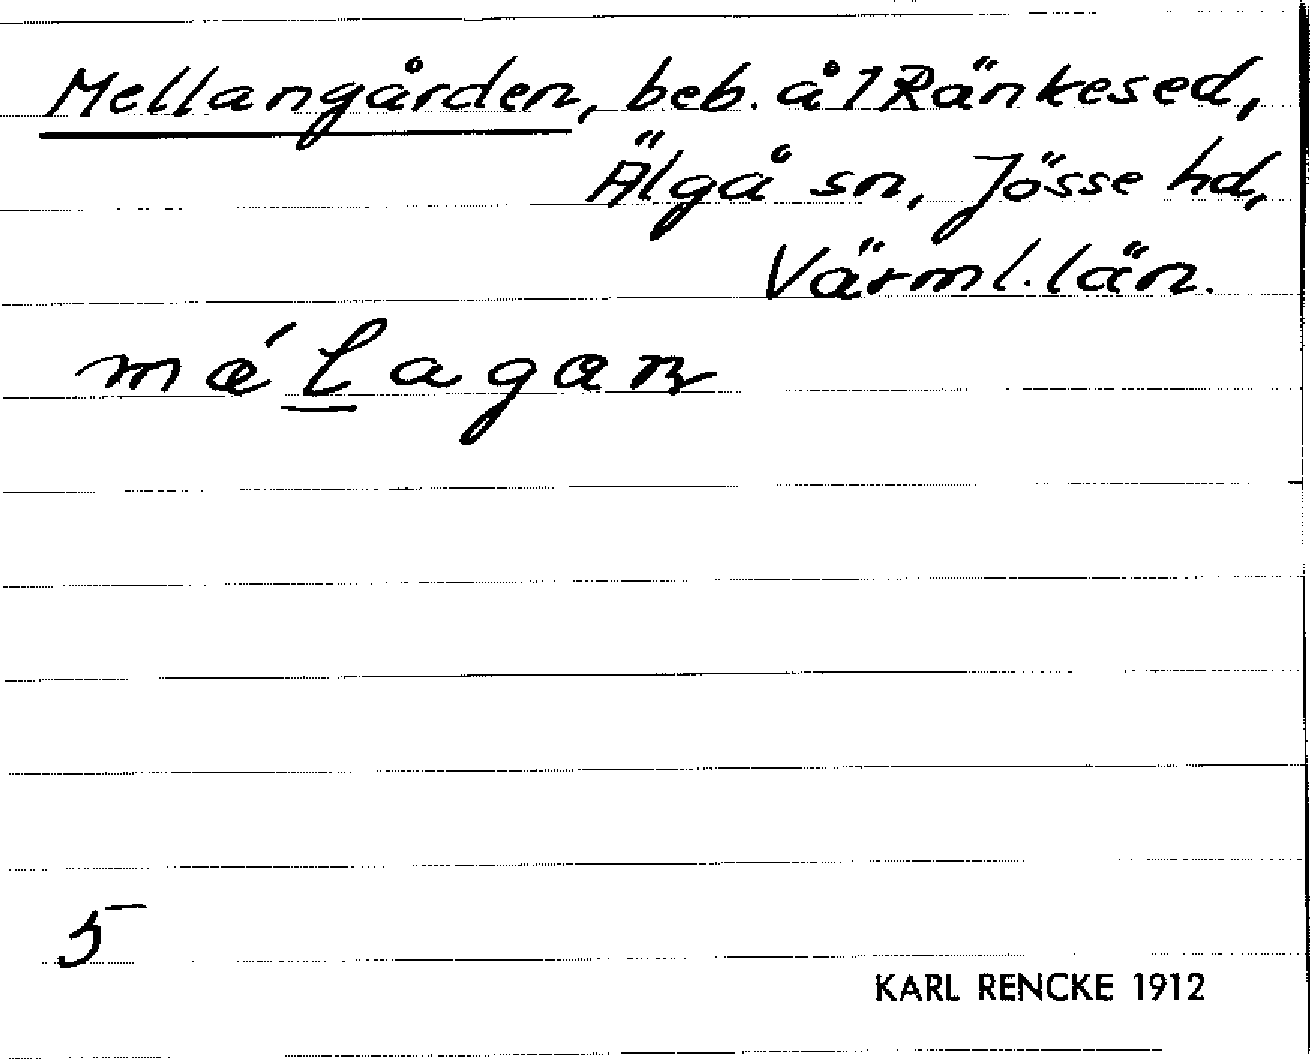 Mellangården, beb. å 1 Ränkesed,
Älgå sn, Jösse hd,
Värml. län.
mǽlagan
5
KARL RENCKE 1912